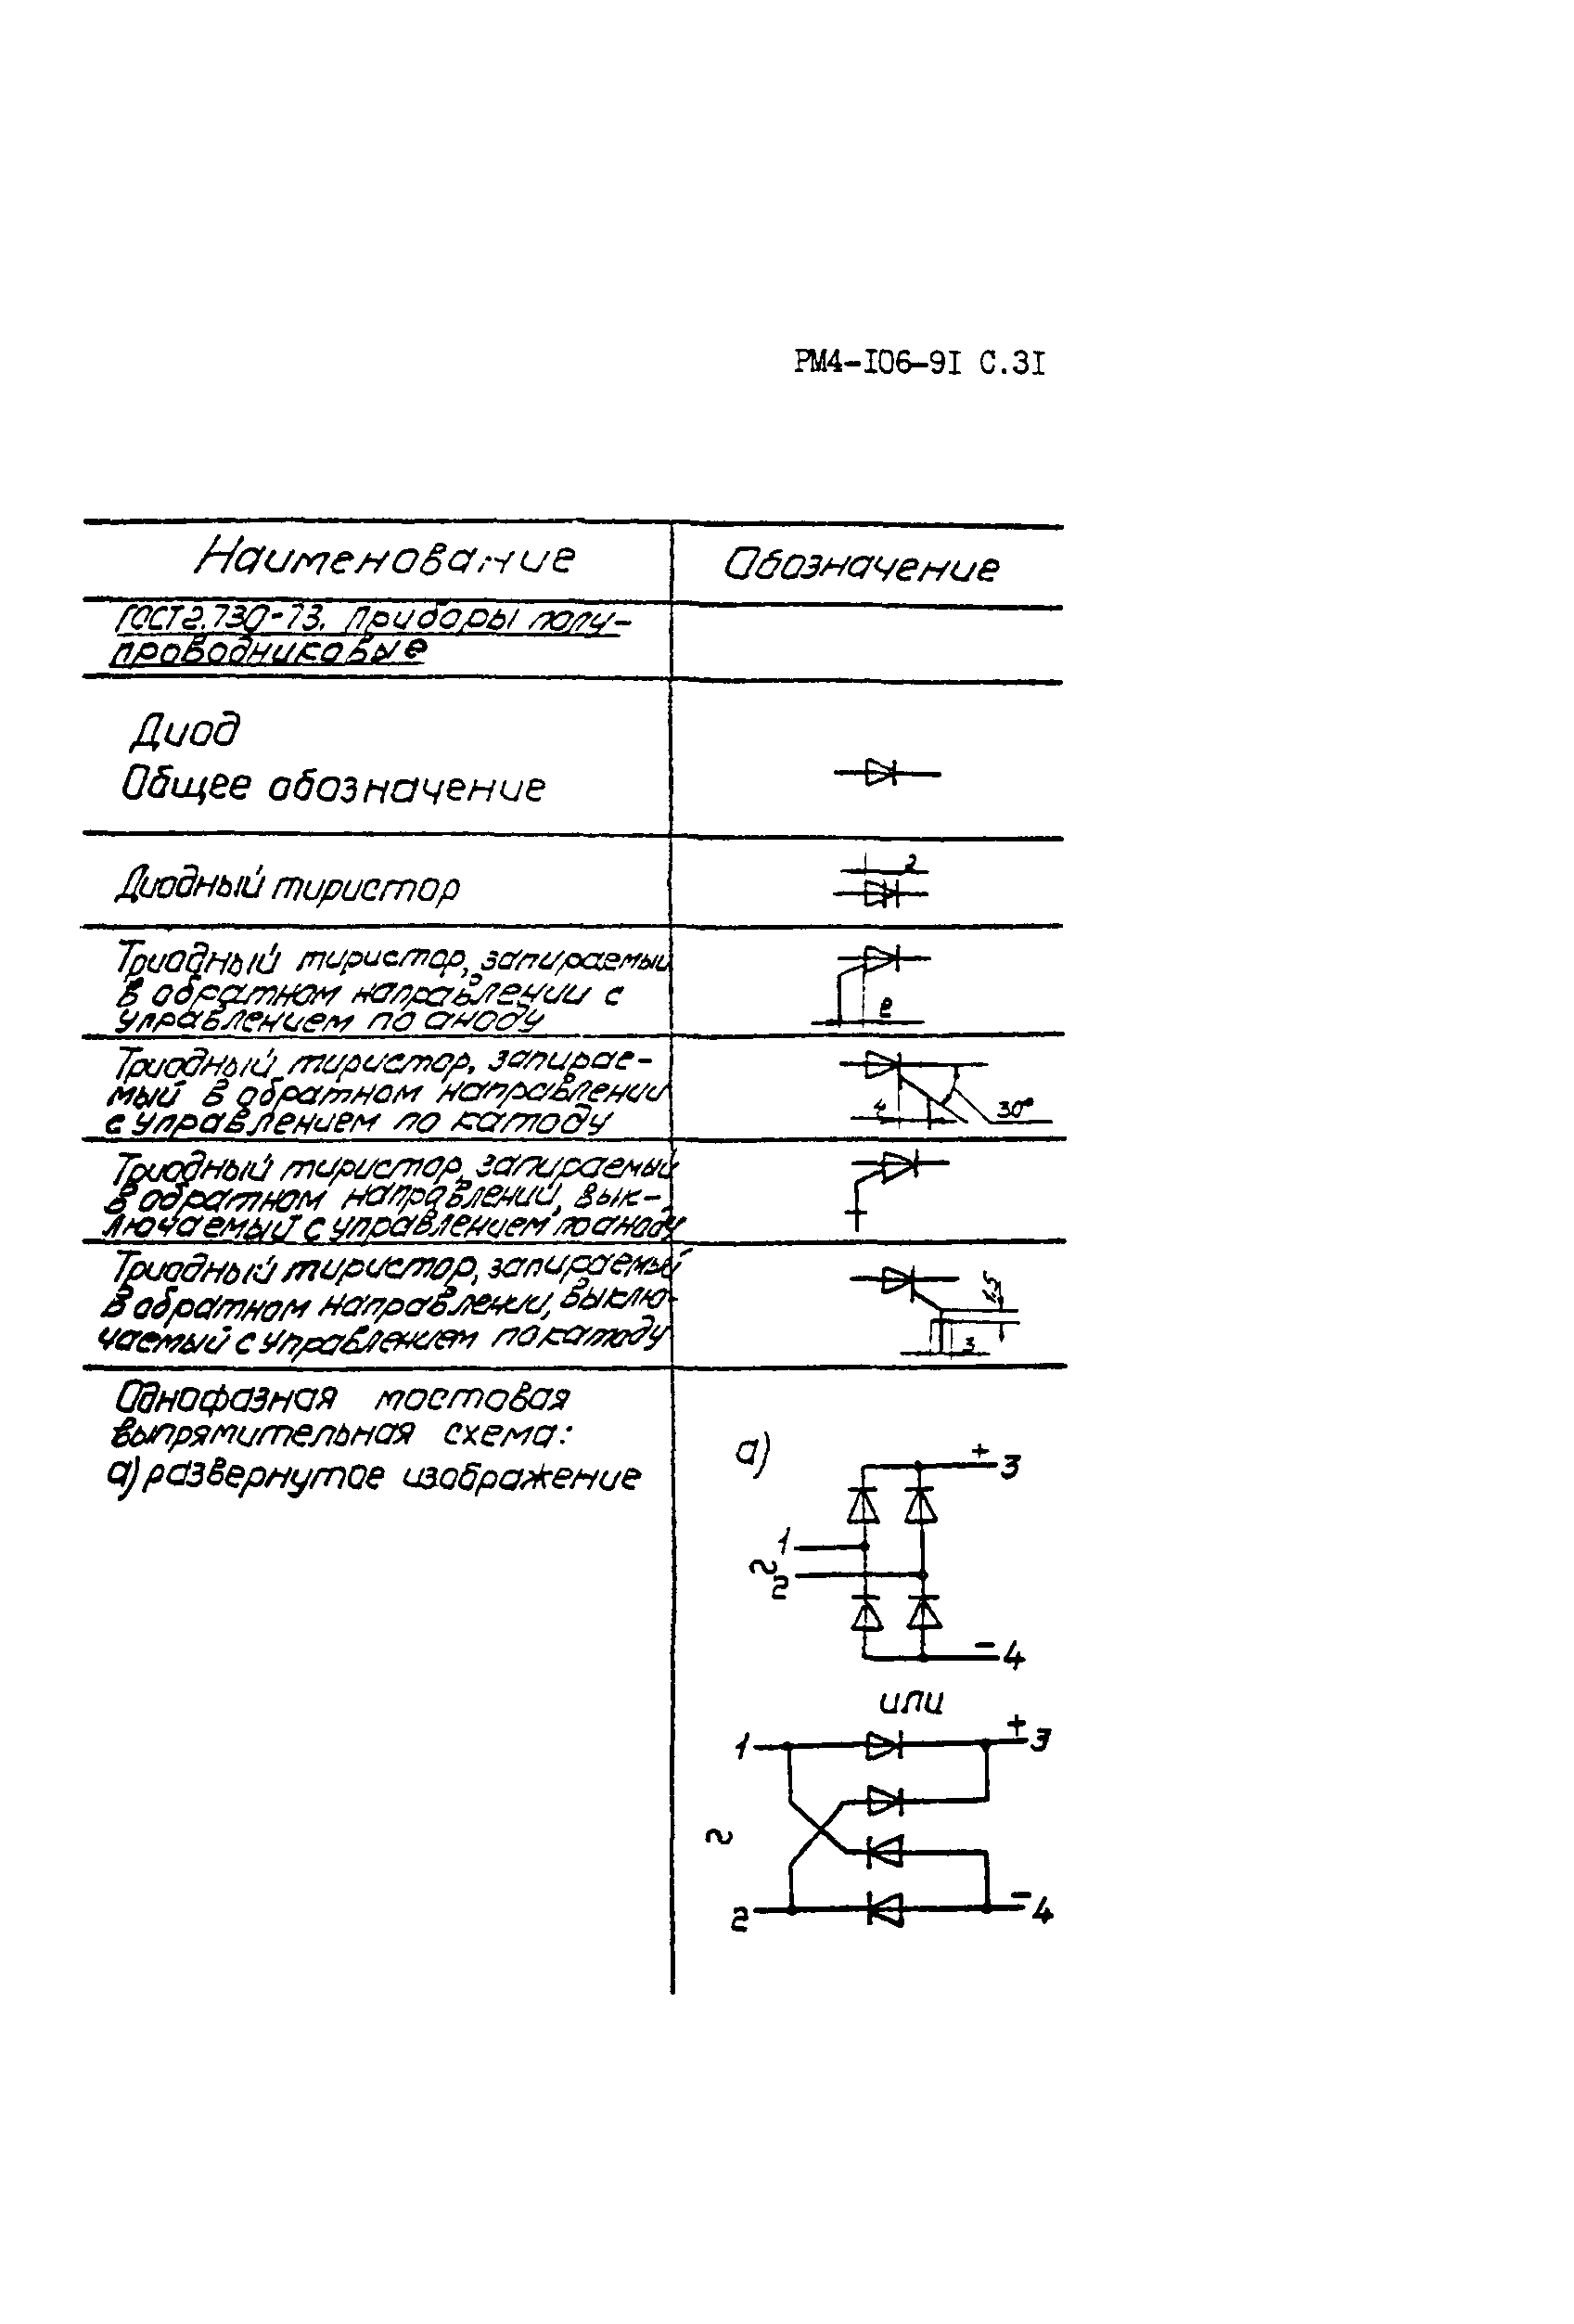 РМ4-I06-9I С.3I
Наименование
Обозначение
ГОСТ2.730-73. Приборы полу-
проводниковые
Диод
Общее обозначение
Диодный тиристор
2
Триодный тиристор, запираемый
в обратном направлении с
управлением по аноду
2
Триодный тиристор, запирае-
мый в обратном направлении
с управлением по катоду
4
30°
Триодный тиристор, запираемый
в обратном направлений, вык-
лючаемый с управлением по аноду
Триодный тиристор, запираемый
в обратном направлении, выклю-
чаемый с управлением по катоду
1,5
3
Однофазная мостовая
выпрямительная схема:
а) развернутое изображение
а)
+ 3
1
~
2
- 4
или
1
+ 3
~
2
- 4